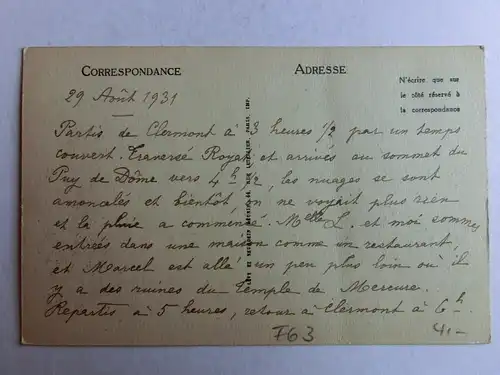 CORRESPONDANCE
ADRESSE
N'écrire que sur
le côté réservé à
la correspondance
29 Août 1931
Partis de Clermont à 3 heures 1/2 par un temps
couvert. Traversé Royat et arrivés au sommet du
Puy de Dôme vers 4h 1/2, les nuages se sont
amoncelés et bientôt, on ne voyait plus rien
et la pluie a commencé. Melle L. et moi sommes
entrées dans une maison comme un restaurant,
et Marcel est allé un peu plus loin où il
y a des ruines du Temple de Mercure.
Repartis à 5 heures, retour à Clermont à 6h.
F63
4.-